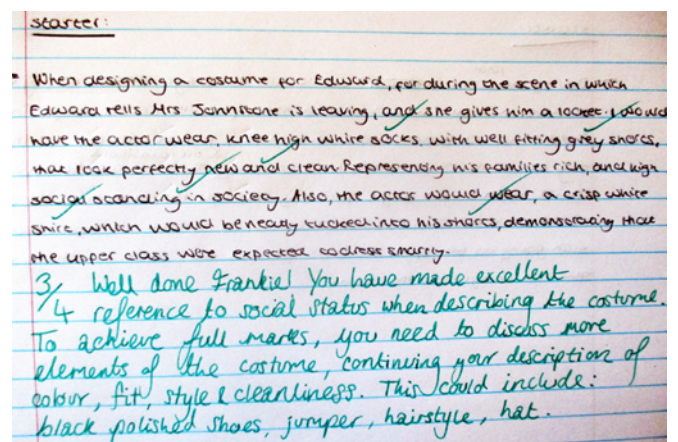 starter:
When designing a costume for Edward, for during the scene in which
Edward tells Mrs Johnstone is leaving, and she gives him a locket. I would
have the actor wear, knee high white socks, with well fitting grey shorts,
that look perfectly new and clean Representing his families rich, and high
social standing in society. Also, the actor would wear, a crisp white
shirt, which would be neatly tucked into his shorts, demonstrating that
the upper class were expected to dress smartly.
3/4 Well done Frankie! You have made excellent
reference to social status when describing the costume.
To achieve full marks, you need to discuss more
elements of the costume, continuing your description of
colour, fit, style & cleanliness. This could include:
black polished shoes, jumper, hairstyle, hat.